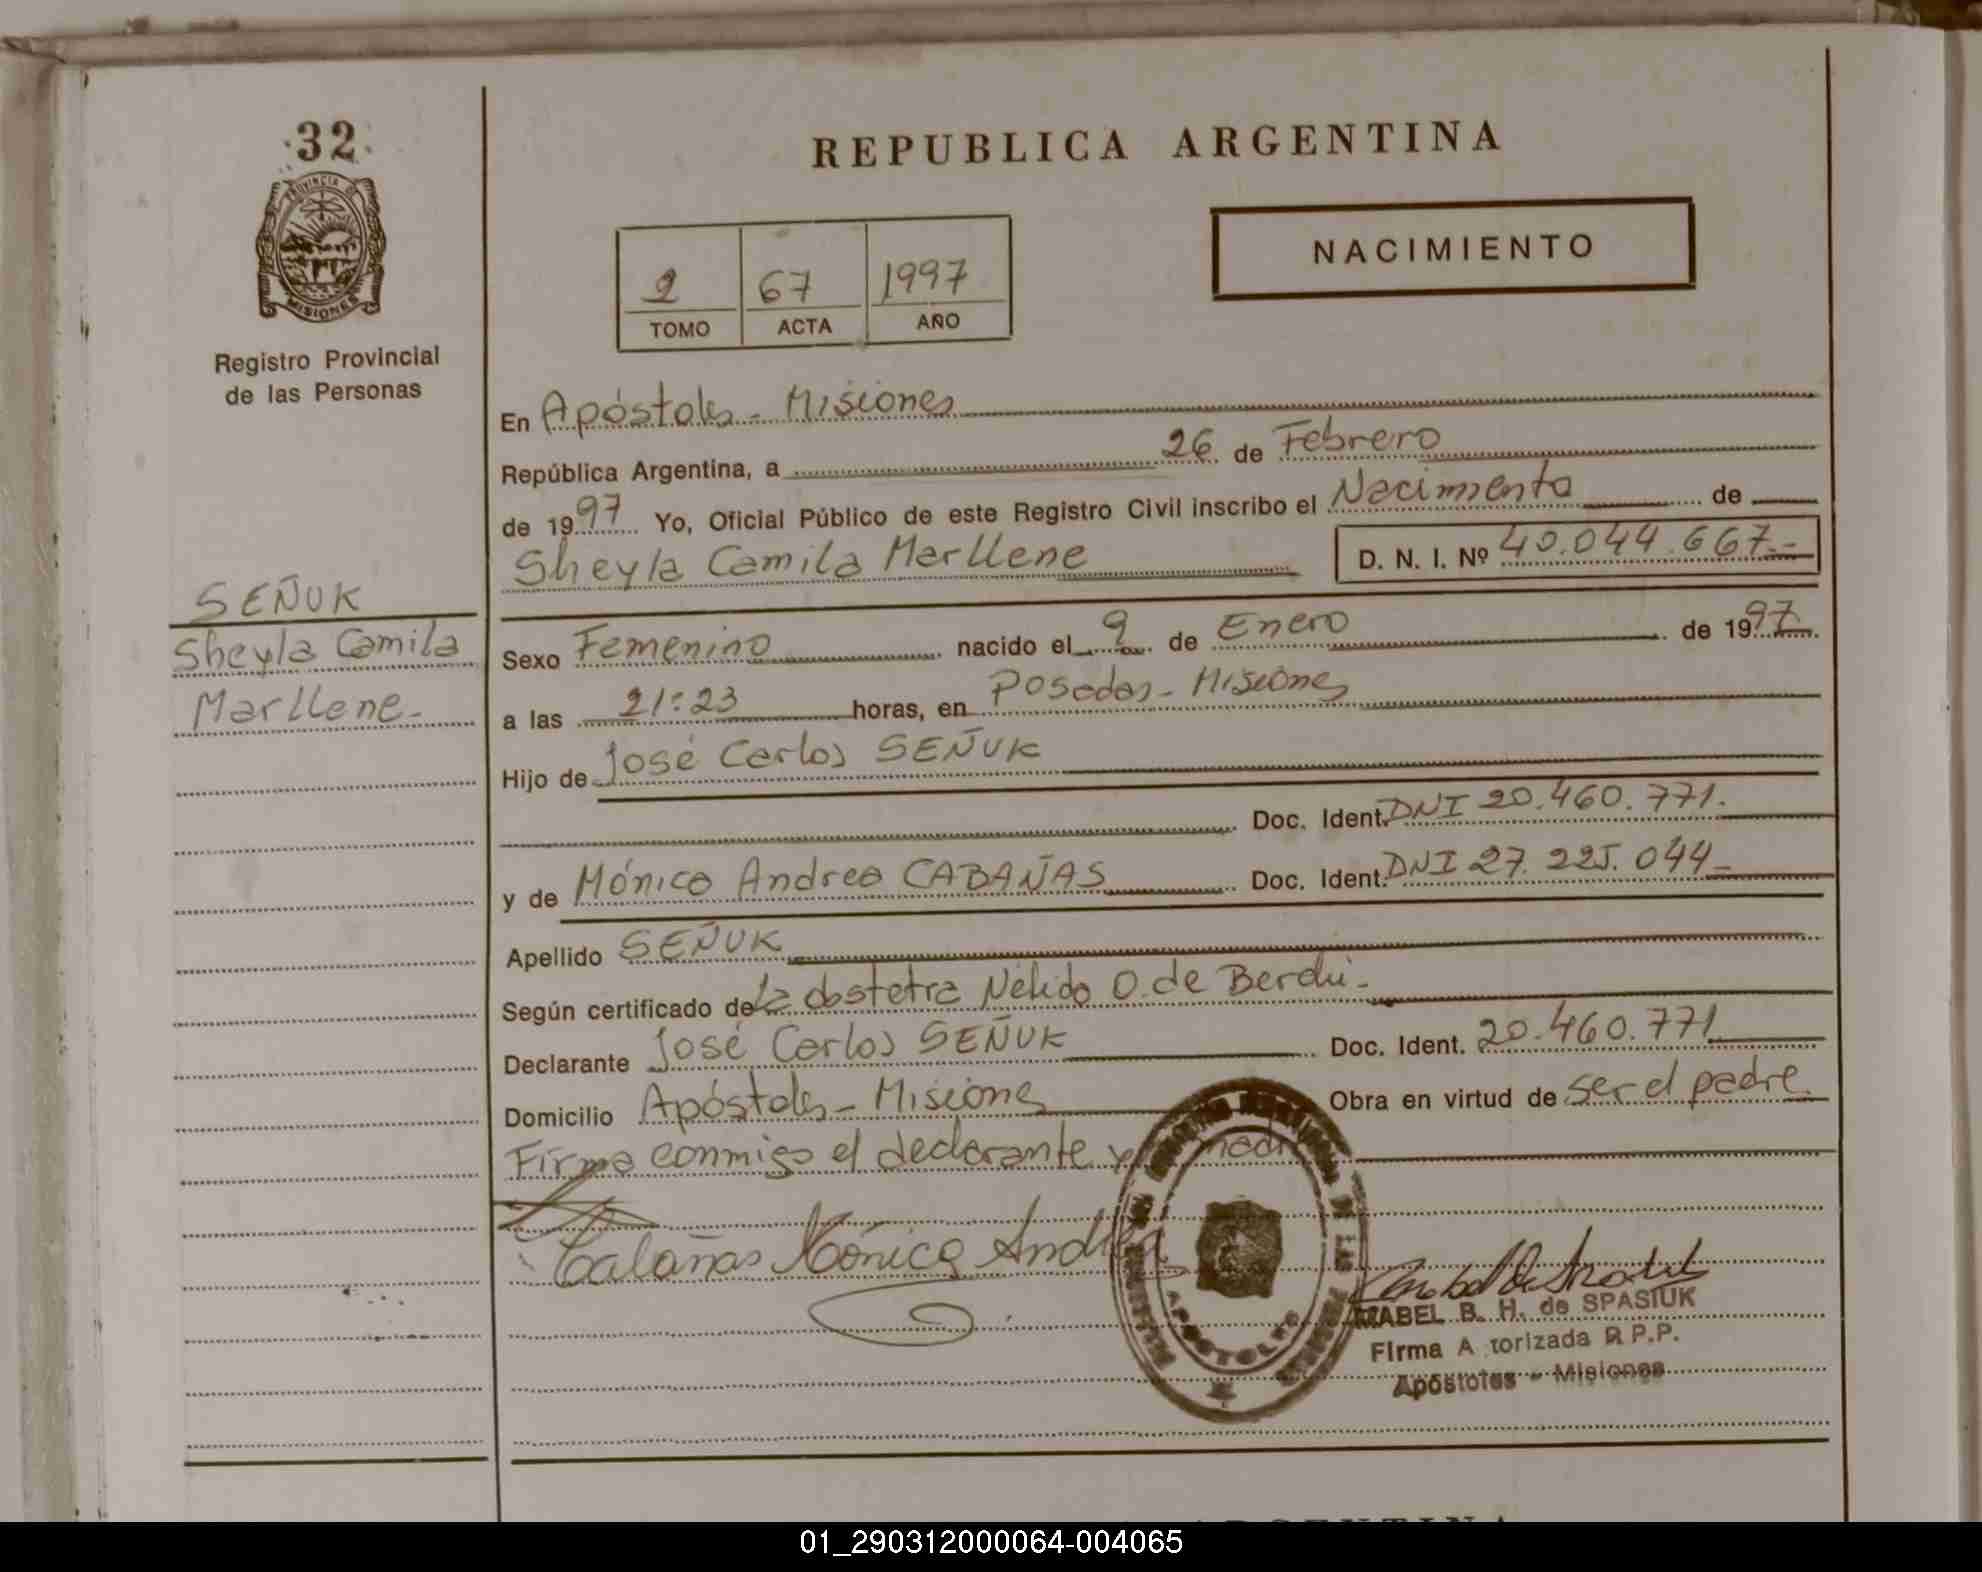 32
PROVINCIA D
MISIONES
Registro Provincial
de las Personas
REPUBLICA ARGENTINA
NACIMIENTO
2 67 1997
TOMO ACTA AÑO
En Apóstoles - Misiones
República Argentina, a 26 de Febrero
de 1997 Yo, Oficial Público de este Registro Civil inscribo el Nacimiento de
Sheyla Camila Marllene D. N. I. Nº 40.044.667.-
SEÑUK
Sheyla Camila
Marllene-
Sexo Femenino nacido el 9 de Enero de 1997
a las 21:23 horas, en Posadas - Misiones
Hijo de José Carlos SEÑUK
Doc. Ident. DNI 20.460.771.
y de Mónica Andrea CABAÑAS Doc. Ident. DNI 27.225.044-
Apellido SEÑUK
Según certificado de la obstetra Nélida O. de
Declarante José Carlos SEÑUK Doc. Ident. 20.460.771
Domicilio Apóstoles - Misiones Obra en virtud de ser el padre
Firma conmigo el declarante y madre
Cabañas Mónica Andrea
APOSTOLES
MABEL B. H. de SPASIUK
Firma A torizada R P.P.
Apóstoles - Misiones
ARGENTINA
01_290312000064-004065